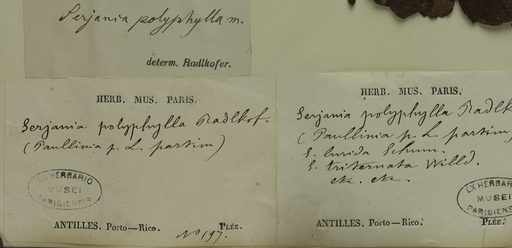 Serjania polyphylla m.
determ. Radlkofer.
HERB. MUS. PARIS.
Serjania polyphylla Radlkof.
(Paullinia p. L. partim)
EX HERBARIO
MUSEI
PARISIENSIS
ANTILLES. Porto—Rico.
No 197.
PLÉE.
HERB. MUS. PARIS.
Serjania polyphylla Radlk
(Paullinia p. L. partim)
S. lurida Schum.
S. triternata Willd.
etc. etc.
EX HERBARIO
MUSEI
PARISIENSIS
ANTILLES. Porto—Rico.
PLÉE.